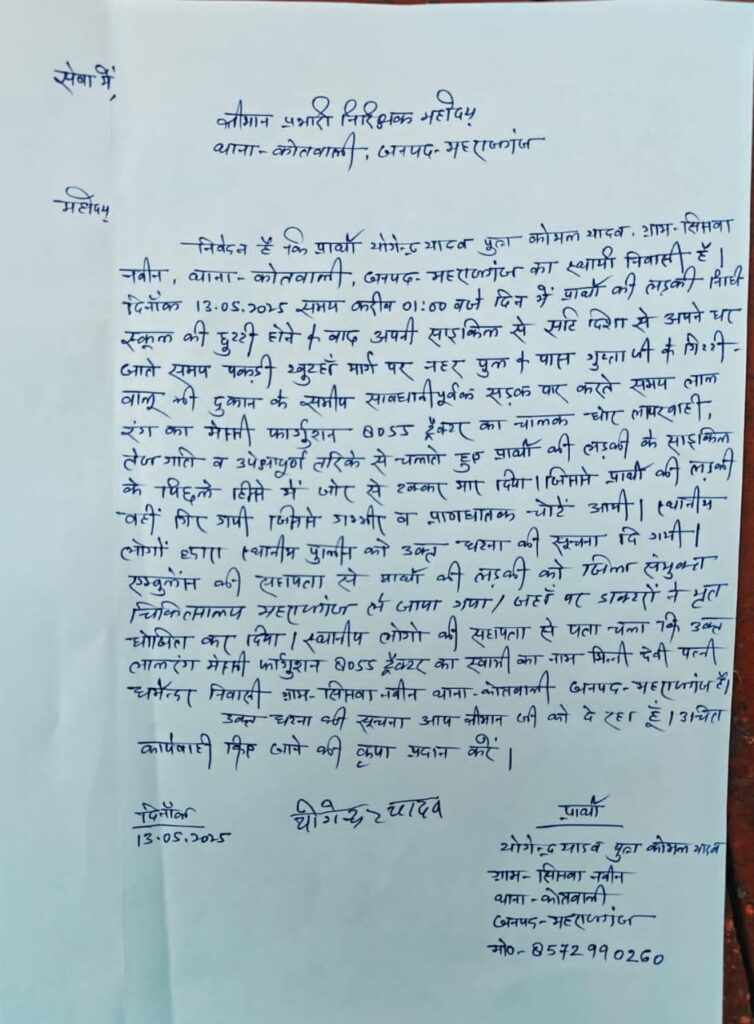 सेवा में,
श्रीमान प्रभारी निरिक्षक महोदय
थाना-कोतवाली, जनपद-महराजगंज
महोदय
निवेदन है कि प्रार्थी योगेन्द्र यादव पुत्र कोमल यादव, ग्राम-सिसवा
नवीन, थाना-कोतवाली, जनपद-महराजगंज का स्थायी निवासी है |
दिनाँक 13.05.2025 समय करीब 01:00 बजे दिन में प्रार्थी की लड़की निधि
स्कूल की छुट्टी होने के बाद अपनी साइकिल से सटि दिशा से अपने घर
जाते समय पकड़ी खुटहाँ मार्ग पर नहर पुल के पास गुप्ता जी के गिट्टी-
बालू की दुकान के समीप सावधानीपूर्वक सड़क पार करते समय लाल
रंग का मैसी फार्गुशन 8055 ट्रैक्टर का चालक घोर लापरवाही,
तेज गति व उपेक्षापूर्ण तरिके से चलाते हुए प्रार्थी की लड़की के साइकिल
के पिछले हिस्से में जोर से टक्कर मार दिया | जिससे प्रार्थी की लड़की
वहीं गिर गयी जिससे गम्भीर व प्राणघातक चोटें आयी | स्थानीय
लोगों द्वारा स्थानीय पुलीस को उक्त घटना की सूचना दि गयी |
एम्बुलेंस की सहायता से प्रार्थी की लड़की को जिला संयुक्त
चिकित्सालय महराजगंज ले जाया गया / जहाँ पर डाक्टरों ने मृत
घोषित कर दिया | स्थानीय लोगो की सहायता से पता चला कि उक्त
लालरंग मैसी फार्गुशन 8055 ट्रैक्टर का स्वामी का नाम मिन्नी देवी पत्नी
धर्मेन्दर निवासी ग्राम-सिसवा-नवीन थाना-कोतवाली जनपद-महराजगंज है|
उक्त घटना की सूचना आप श्रीमान जी को दे रहा हूँ | उचित
कार्यवाही किए जाने की कृपा प्रदान करें |
दिनाँक
13.05.2025
योगेन्द्र यादव
प्रार्थी
योगेन्द्र यादव पुत्र कोमल यादव
ग्राम- सिसवा नवीन
थाना-कोतवाली
जनपद-महराजगंज
मो०- 8572990260